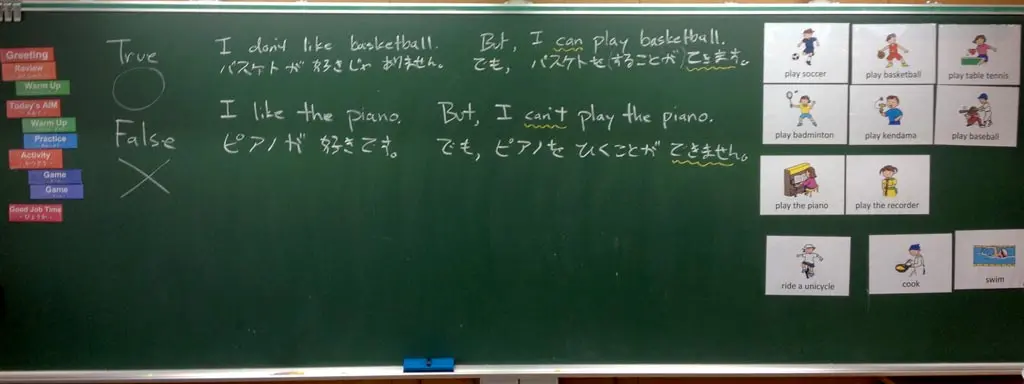 Greeting
Review
Warm Up
Today's AIM
Warm Up
Practice
Activity
Game
Game
Good Job Time
True
False
I don't like basketball. But, I can play basketball.
バスケットが 好きじゃ ありません。 でも, バスケットを(することが)できます。
I like the piano. But, I can't play the piano.
ピアノが 好きです。 でも, ピアノを ひくことが できません。
play soccer
play basketball
play table tennis
play badminton
play kendama
play baseball
play the piano
play the recorder
ride a unicycle
cook
swim